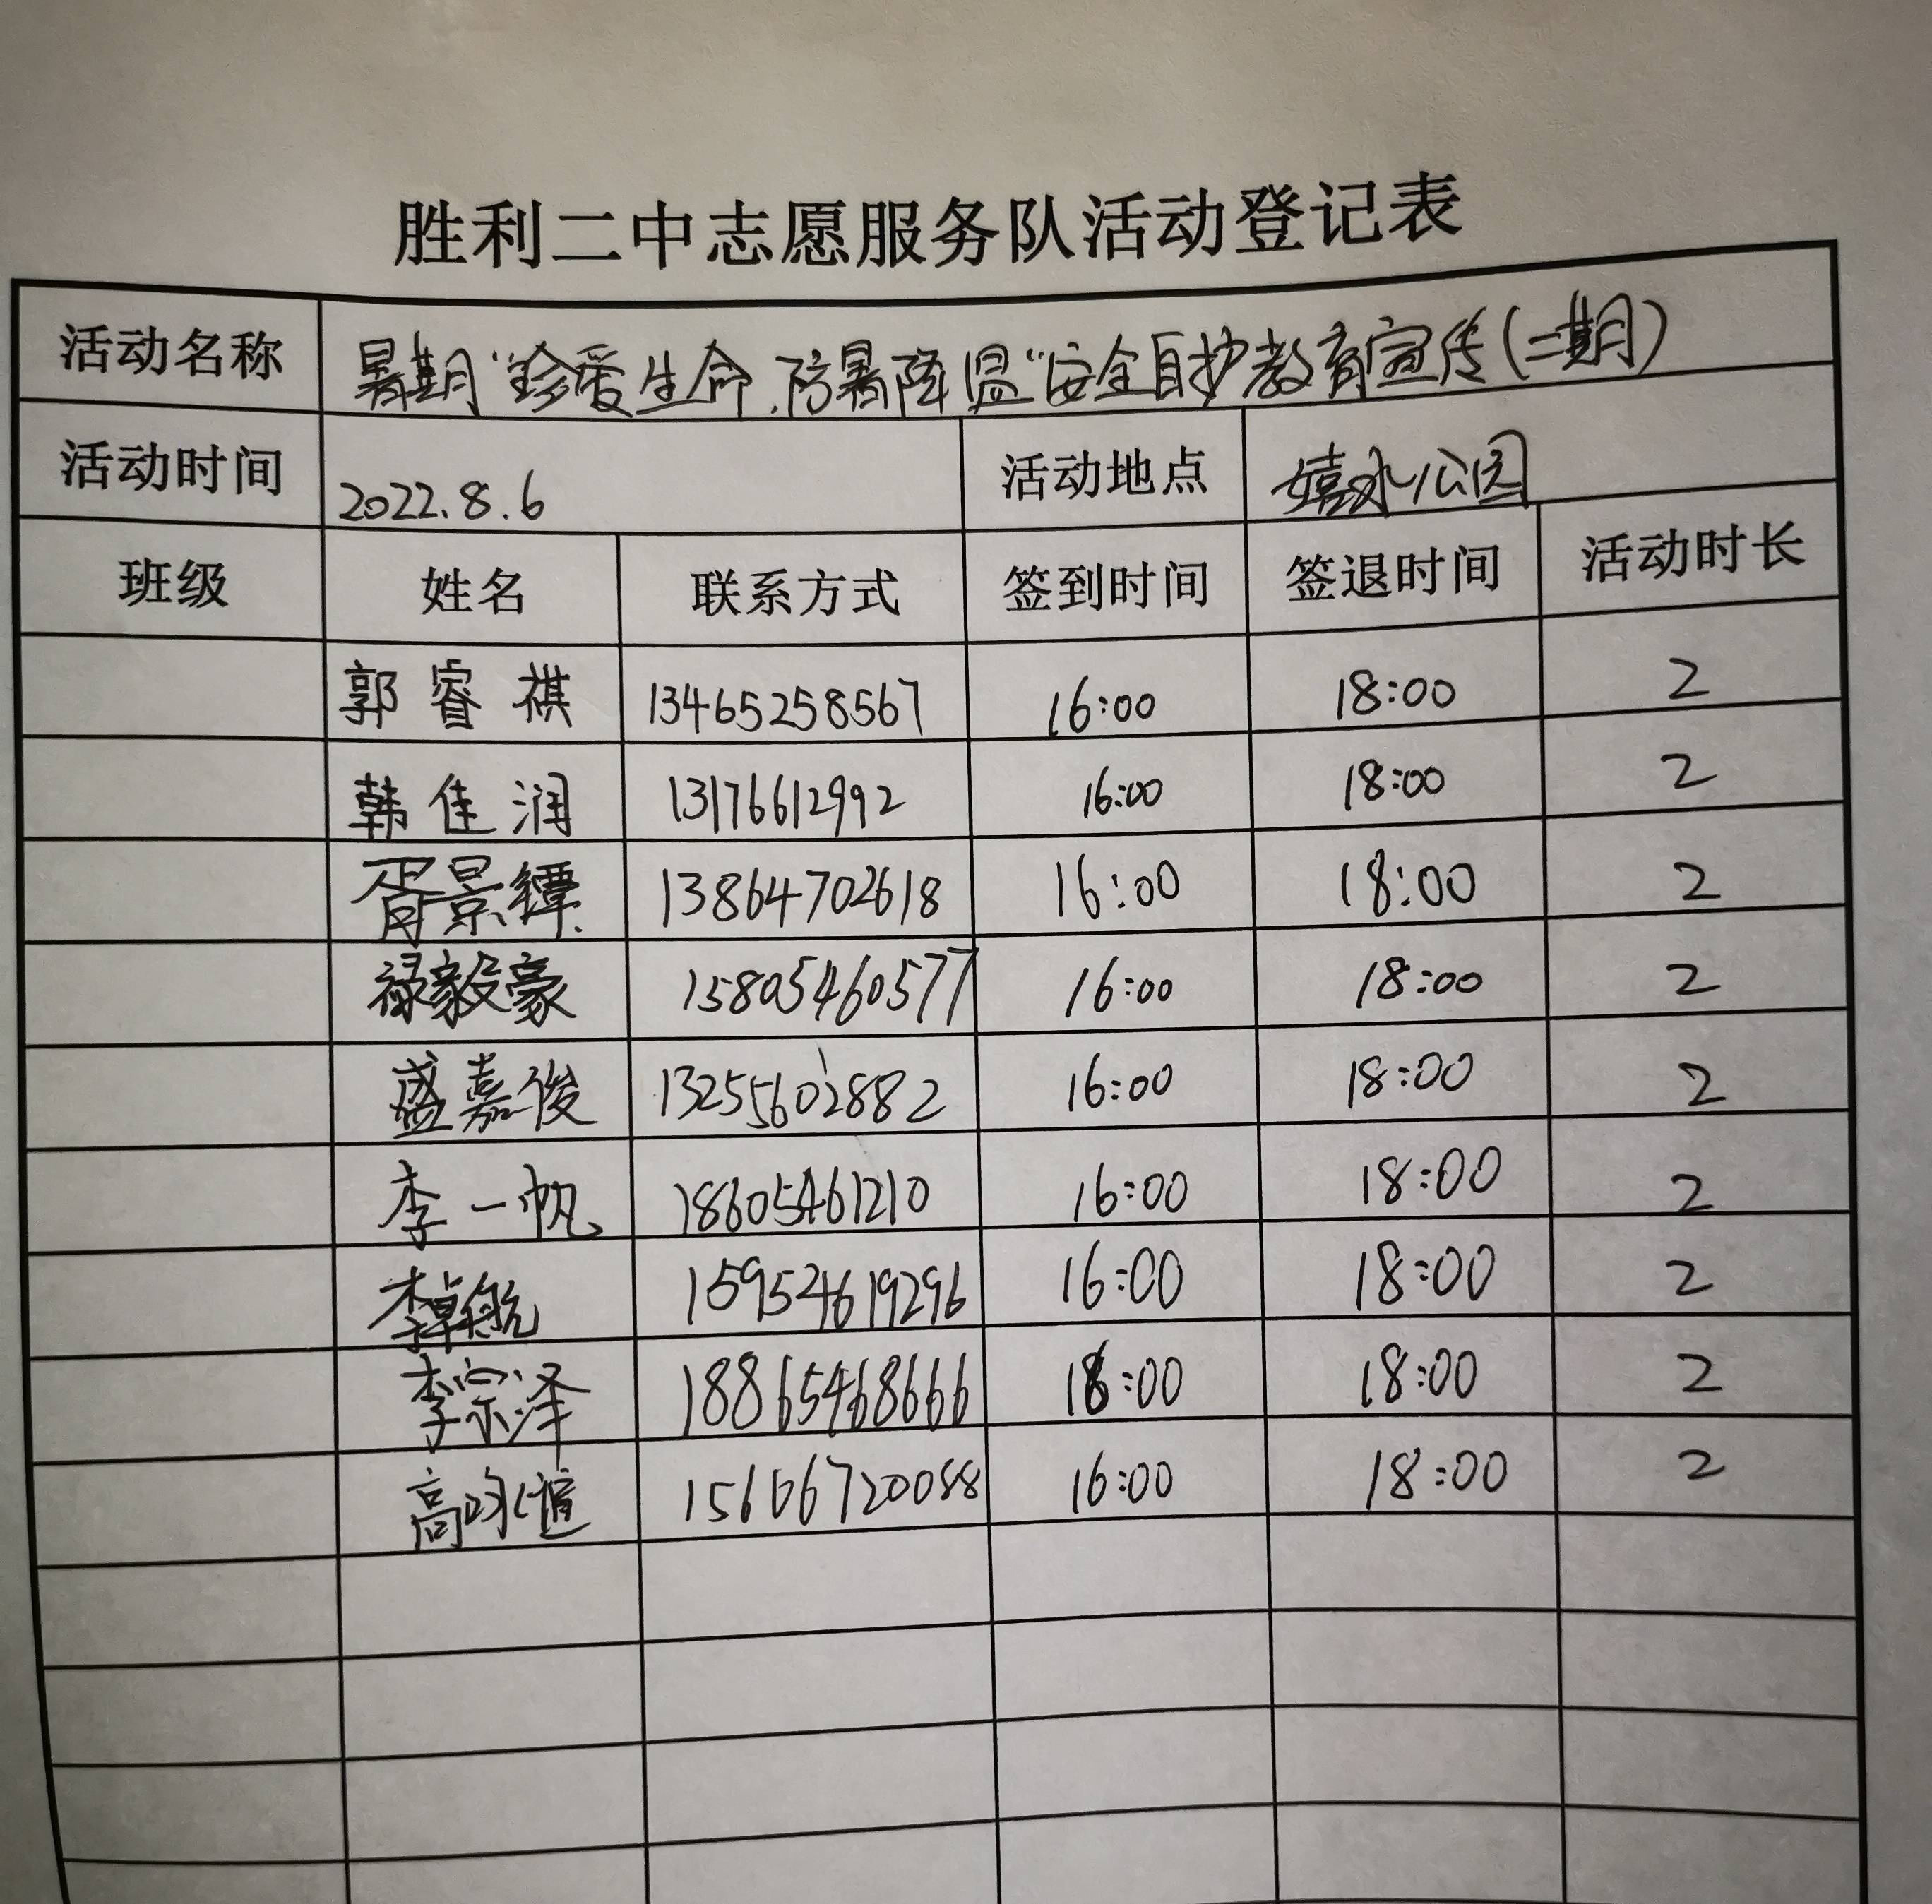 胜利二中志愿服务队活动登记表
活动名称 暑期“珍爱生命、防暑降温”安全自护教育宣传(二期)
活动时间 2022.8.6 活动地点 嬉水公园
班级 姓名 联系方式 签到时间 签退时间 活动时长
郭睿祺 13465258567 16:00 18:00 2
韩佳润 13176612992 16:00 18:00 2
胥景镡 13864702618 16:00 18:00 2
禄毅豪 15805460577 16:00 18:00 2
盛嘉俊 13255602882 16:00 18:00 2
李一帆 18605461210 16:00 18:00 2
李卓航 15954619296 16:00 18:00 2
李宗泽 18865468666 16:00 18:00 2
高 15666720088 16:00 18:00 2